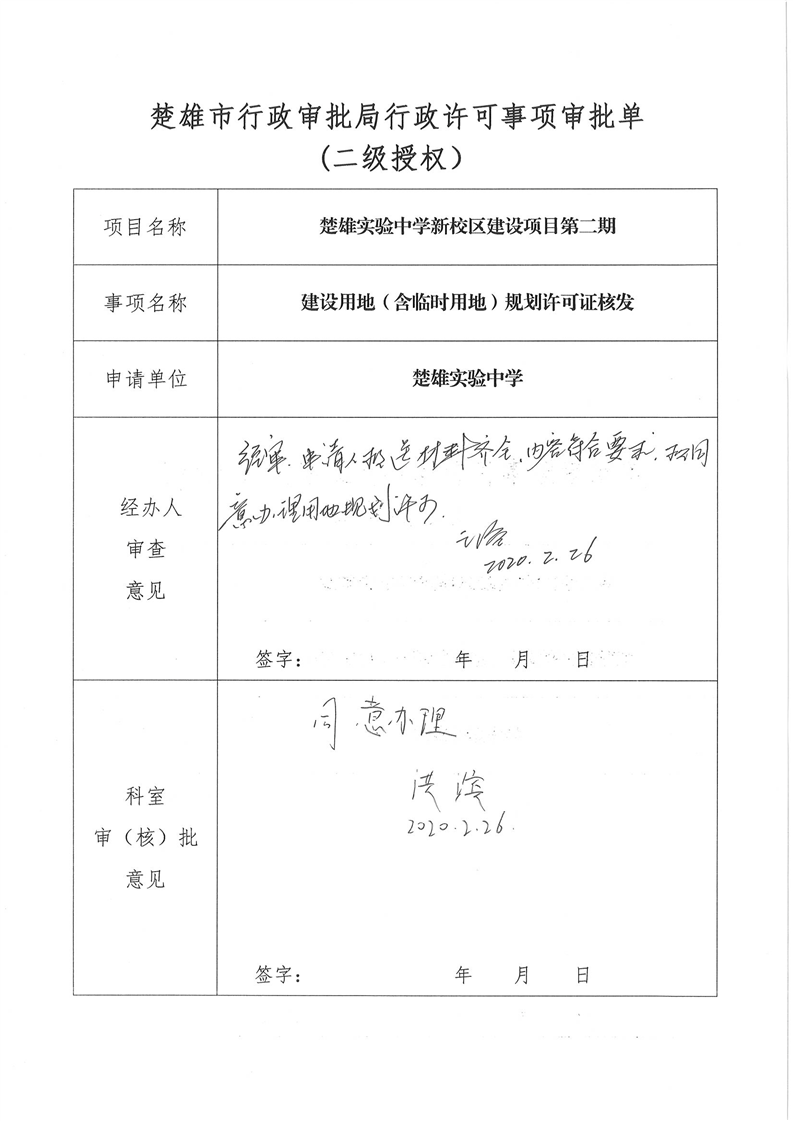 楚雄市行政审批局行政许可事项审批单
(二级授权)
项目名称
楚雄实验中学新校区建设项目第二期
事项名称
建设用地(含临时用地)规划许可证核发
申请单位
楚雄实验中学
经办人
审查
意见
申请人报送材料齐全,内容符合要求,拟同
意办理用地规划许可.
2020.2.26
签字: 年 月 日
科室
审(核)批
意见
同意办理.
洪滨
2020.2.26.
签字: 年 月 日